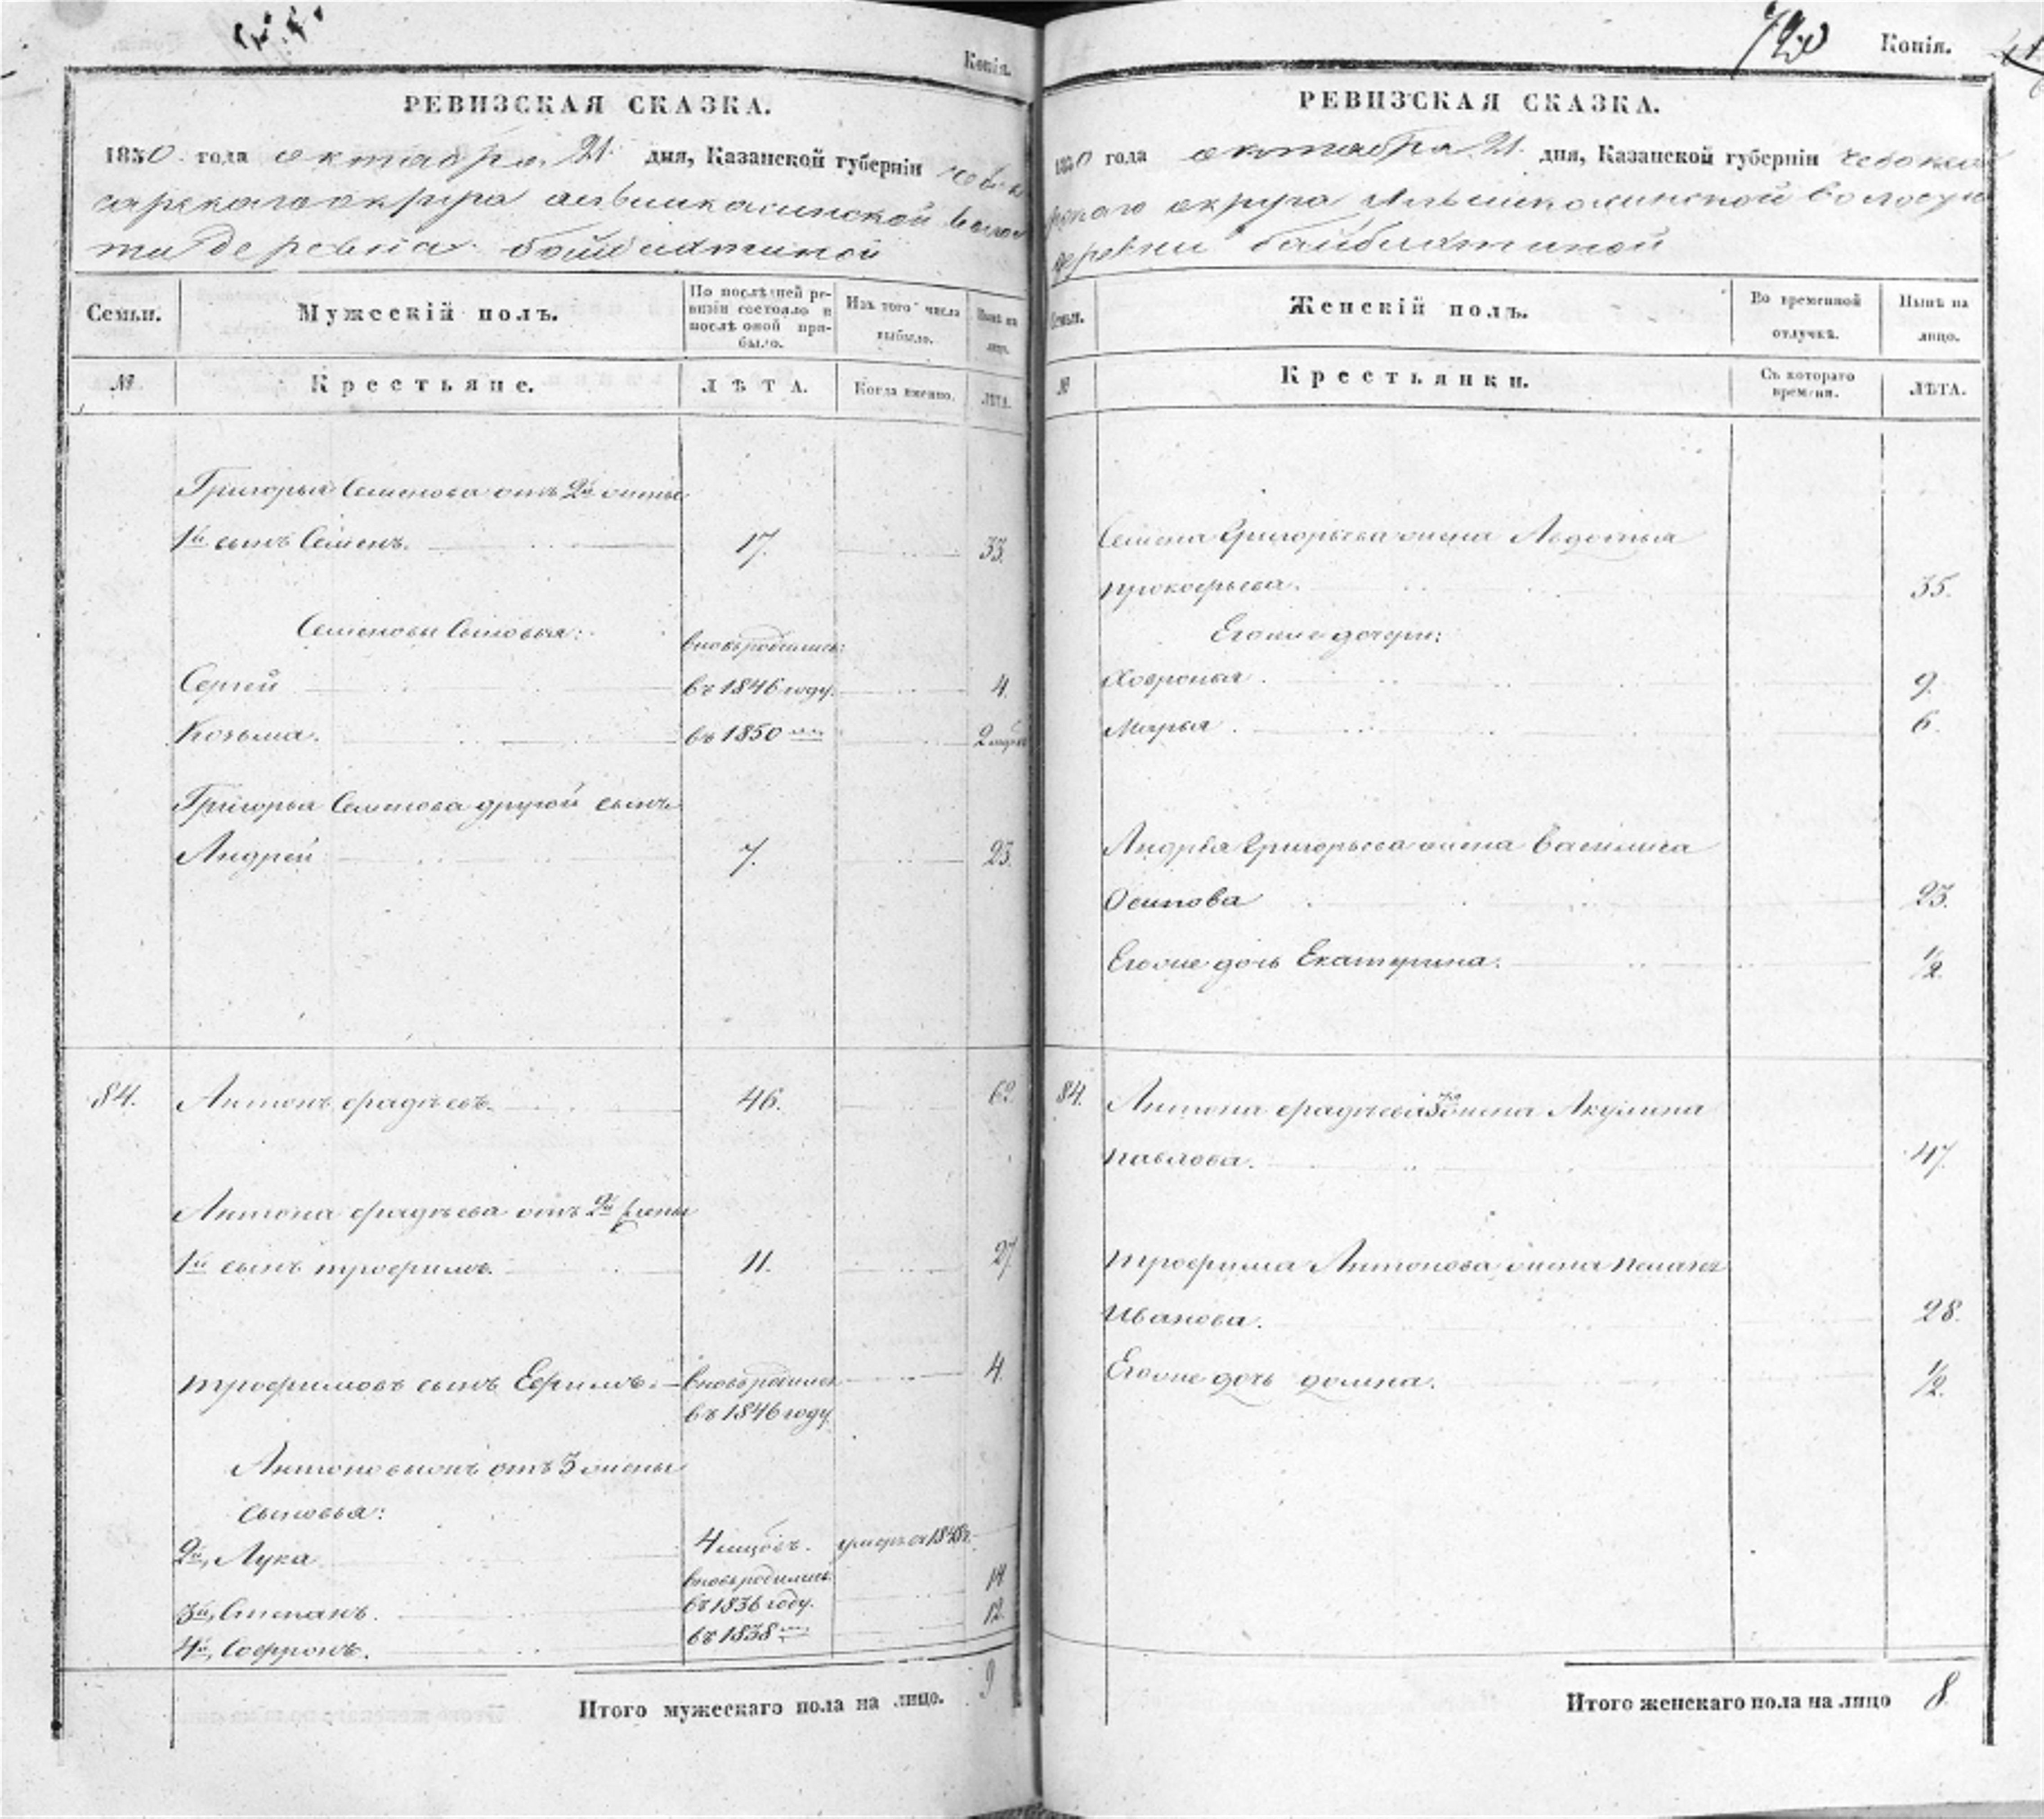 Копія.
РЕВИЗСКАЯ СКАЗКА.
1850 года октября 21 дня, Казанской губерніи чебок
сарскаго округа альшикасинской волос
ти деревни байбиатиной
Семьи.
Мужескій полъ.
По послѣдней ре-
визіи состояло и
послѣ оной при-
было.
Изъ того числа
выбыло.
Нынѣ на
лицо.
№
Крестьяне.
ЛѢТА.
Когда именно.
ЛѢТА.
Григорья Семенова отъ 2й жены
1й сынъ Семенъ. 17. 33.
Семеновы сыновья: вновь родились:
Сергей въ 1846 году. 4.
Козьма. въ 1850 2
Григорья Семенова другой сынъ
Андрей 7. 23.
84. Антонъ фадѣевъ. 46. 62.
Антона фадѣева отъ 2й жены
1й сынъ трофимъ. 11. 27
трофимовъ сынъ Ефимъ. вновь родился 4.
въ 1846 году
отъ 3 жены
сыновья:
2й, Лука 4 умеръ в 1848г.
вновь родились
3й, Степанъ. въ 1836 году. 14
4й, Софронъ. въ 1838 12.
Итого мужескаго пола на лицо. 9
720
Копія.
РЕВИЗСКАЯ СКАЗКА.
1850 года октября 21. дня, Казанской губерніи чебокса
рскаго округа Альшикасинской волости
деревни байбиатиной
Семьи.
Женскій полъ.
Во временной
отлучкѣ.
Нынѣ на
лицо.
№
Крестьянки.
Съ котораго
времени.
ЛѢТА.
Семена Григорьева жена Авдотья
прокофьева. 35.
Егоже дочери:
Ховронья. 9.
Марья. 6.
Андрея Григорьева жена Василиса
Осипова 23.
Егоже дочь Екатерина. 1/2.
84. Антона фадѣева 3 жена Акулина
павлова. 47
трофима Антонова жена
Иванова. 28.
Егоже дочь домна. 1/2.
Итого женскаго пола на лицо 8